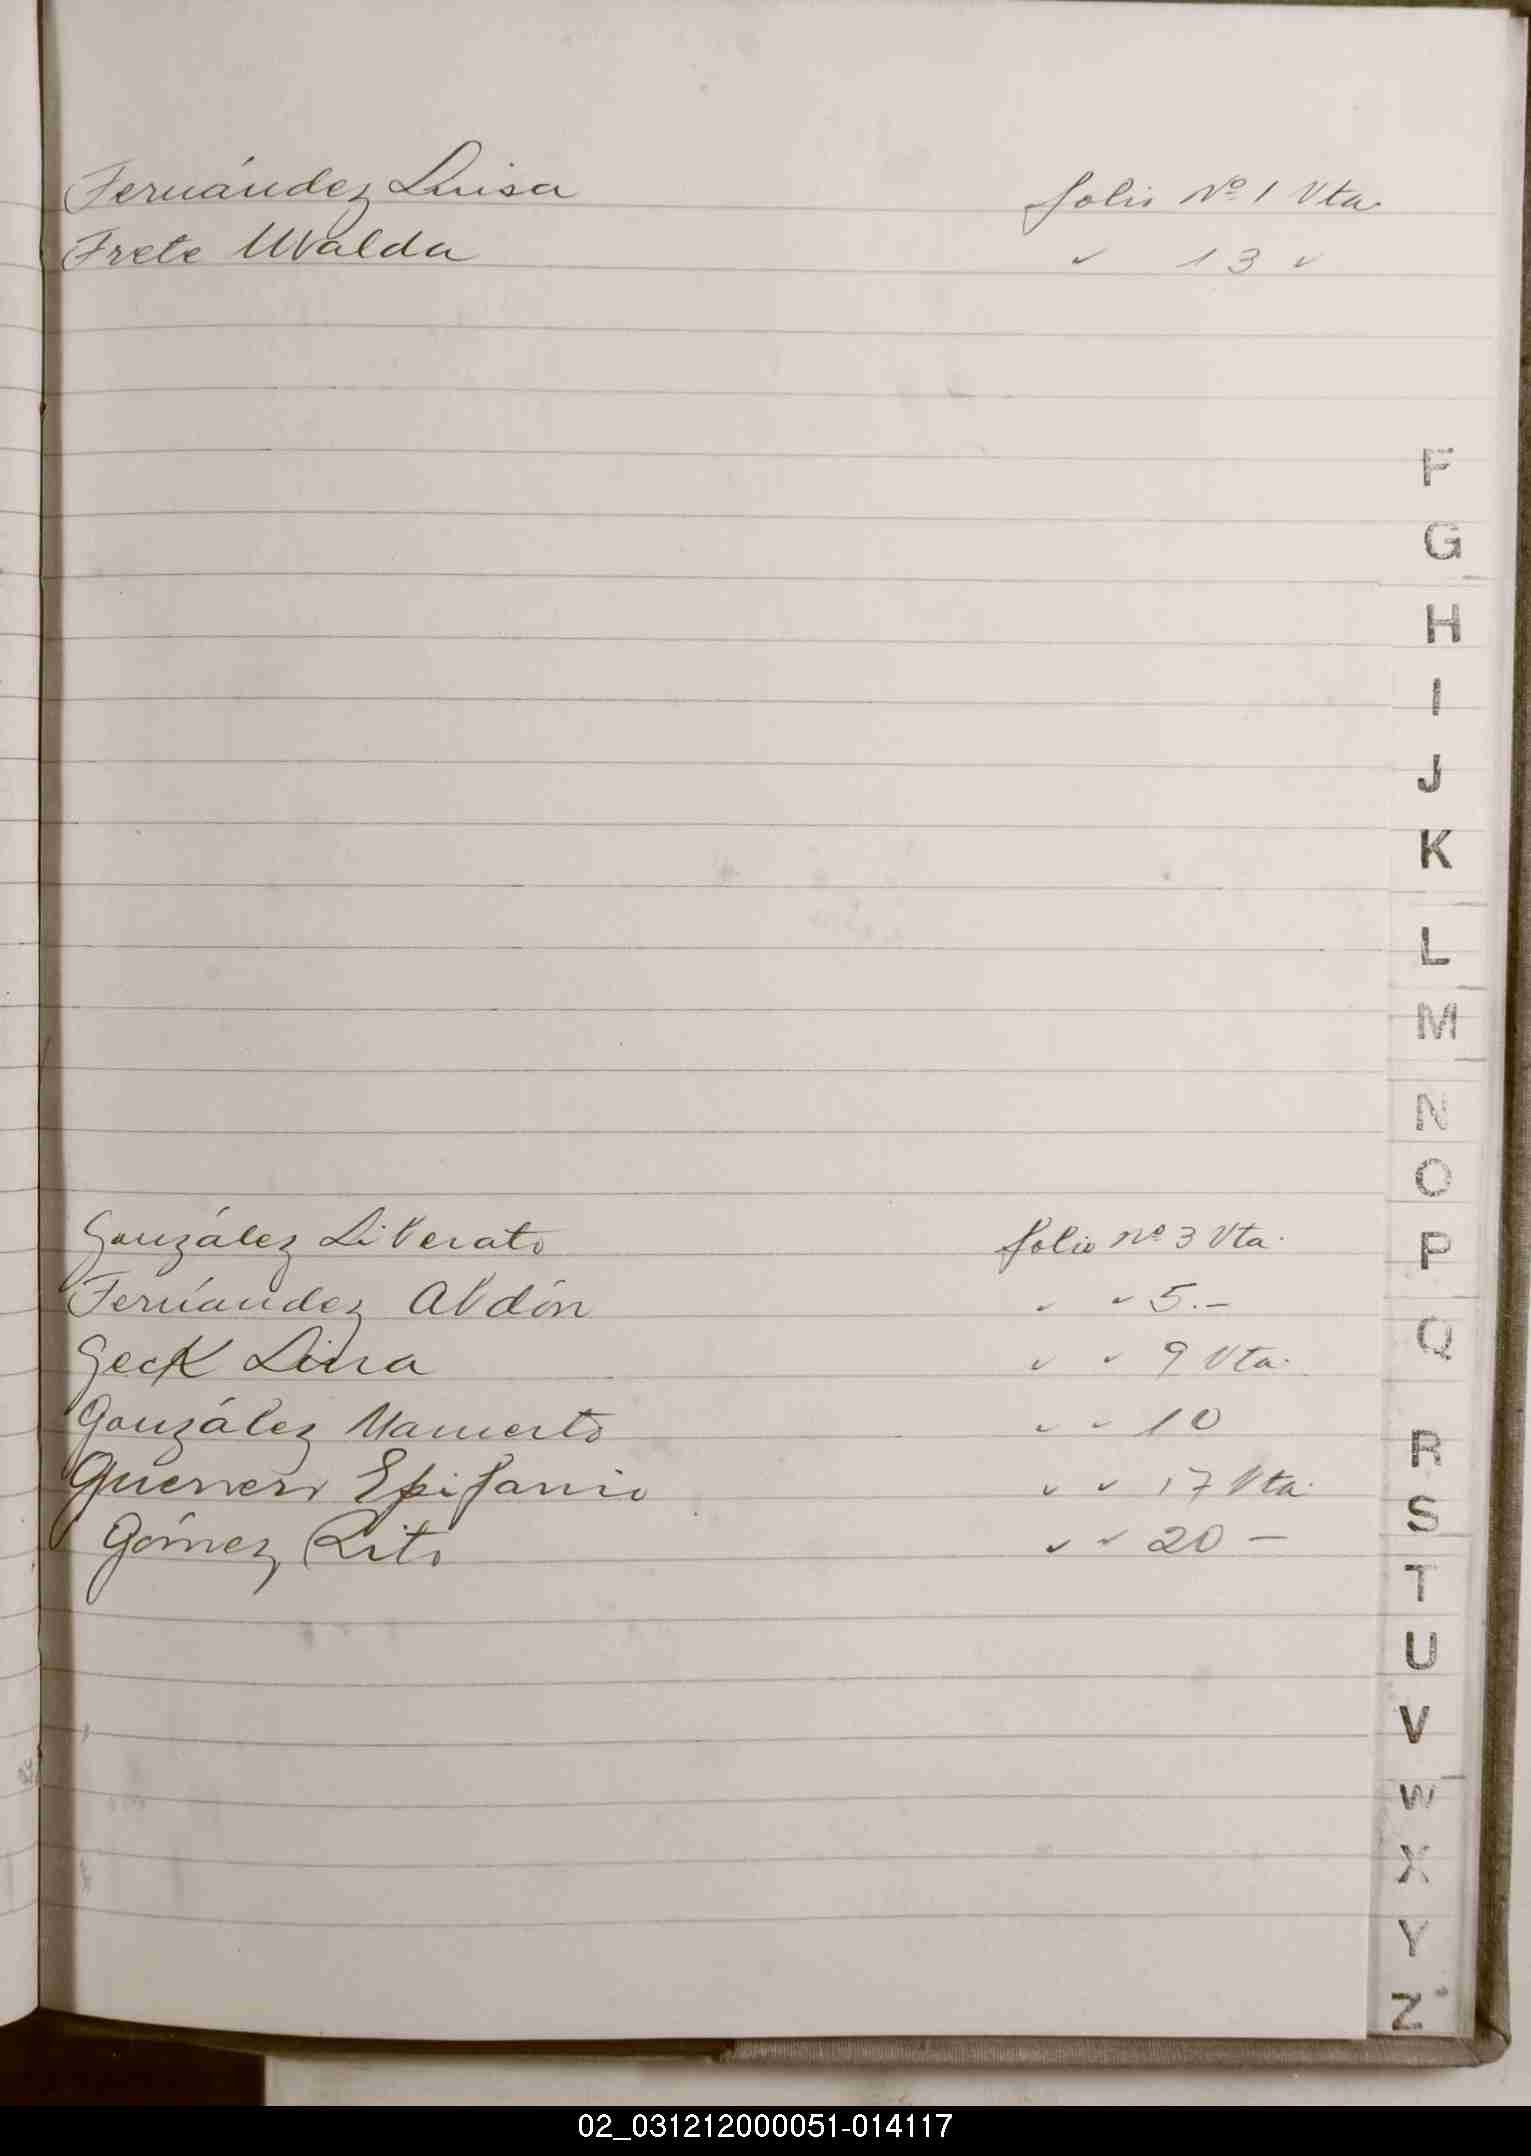 Fernández Luisa folio Nº 1 Vta.
Frete Ubalda " 13 "
F
G
H
I
J
K
L
M
N
O
P
Q
R
S
T
U
V
W
X
Y
Z
González Liberato folio nº 3 Vta.
Fernández Abdón " " 5.-
Geck Lina " " 9 Vta.
González Mamerto " " 10
Guerrero Epifanio " " 17 Vta.
Gómez Rito " " 20 -
02_031212000051-014117